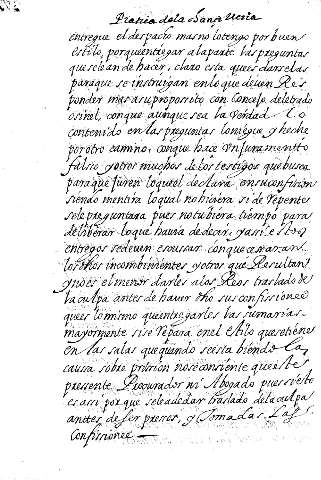 Pratica de la Santa Uecia
entregue el despacho mas no lo tengo por buen
estilo, porqui entregar a la parte las preguntas
que se le an de hacer, claro esta que es darselas
para que se instruigan en lo que deuen Res
ponder mas a su proposito con Consejo de letrado
o sin el, con que aunque sea la verdad lo
contenido en las preguntas lo niegue y heche
por otro camino, con que hace un Juramento
falso y otros muchos de los testigos que busca
para que Juren lo que el declara, en su confision
siendo mentira lo qual no hiciera si de Repente
se le preguntara pues no tubiera, tiempo para
deliberar lo que hauia de decir, y asi estos
entregos se deuen escusar con que cesaran
los dhos incombinientes y otros que Resultan
y no es el menor darles a los Reos traslado de
la culpa antes de hauer dho sus confissiones
que es lo mismo que entregarles las sumarias
mayormente si se Repara en el Estilo que se tiene
en las salas que quando se esta biendo la
causa sobre prision no se consiente que este
presente Procurador ni Abogado pues si esto
es assi por que se le a de dar traslado de la culpa
antes de ser presos, y tomadas las
Confissiones